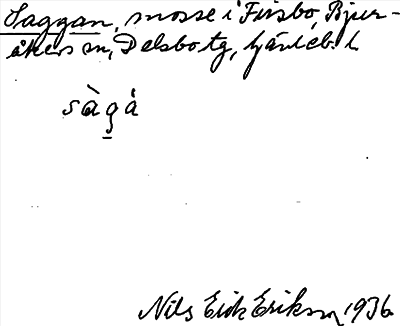 Saggan, mosse i Firsbo, Bjur-
åkers sn, Delsbo tg, Gävleb. l.
sàg̱å
Nils Erik Eriksson 1936